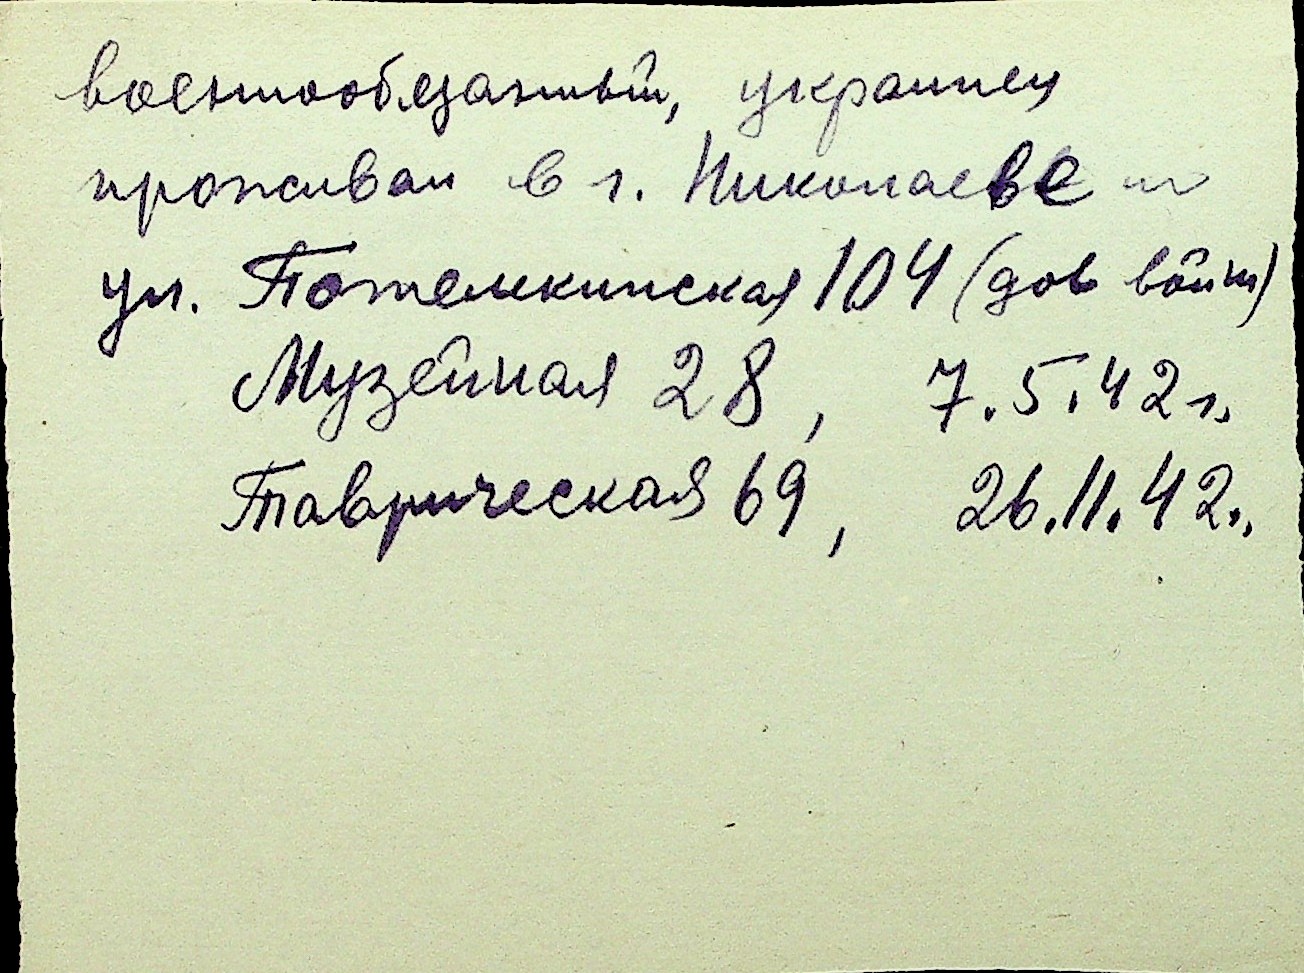 военнообязанный, украинец
проживал в г. Николаеве
ул. Потемкинская 104 (до войны)
Музейная 28, 7.5.42 г.,
Таврическая 69, 26.11.42.,